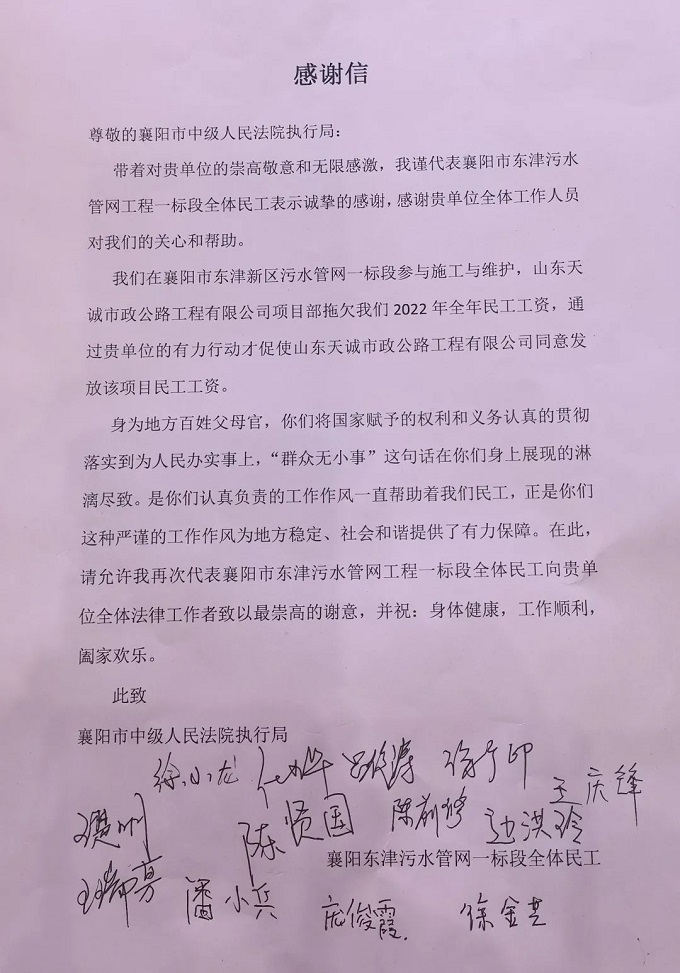 感谢信
尊敬的襄阳市中级人民法院执行局：
带着对贵单位的崇高敬意和无限感激，我谨代表襄阳市东津污水
管网工程一标段全体民工表示诚挚的感谢，感谢贵单位全体工作人员
对我们的关心和帮助。
我们在襄阳市东津新区污水管网一标段参与施工与维护，山东天
诚市政公路工程有限公司项目部拖欠我们 2022 年全年民工工资，通
过贵单位的有力行动才促使山东天诚市政公路工程有限公司同意发
放该项目民工工资。
身为地方百姓父母官，你们将国家赋予的权利和义务认真的贯彻
落实到为人民办实事上，“群众无小事”这句话在你们身上展现的淋
漓尽致。是你们认真负责的工作作风一直帮助着我们民工，正是你们
这种严谨的工作作风为地方稳定、社会和谐提供了有力保障。在此，
请允许我再次代表襄阳市东津污水管网工程一标段全体民工向贵单
位全体法律工作者致以最崇高的谢意，并祝：身体健康，工作顺利，
阖家欢乐。
此致
襄阳市中级人民法院执行局
徐小龙
王庆锋
陈贤国
边洪玲
襄阳东津污水管网一标段全体民工
潘小兵 庞俊霞 徐金芝